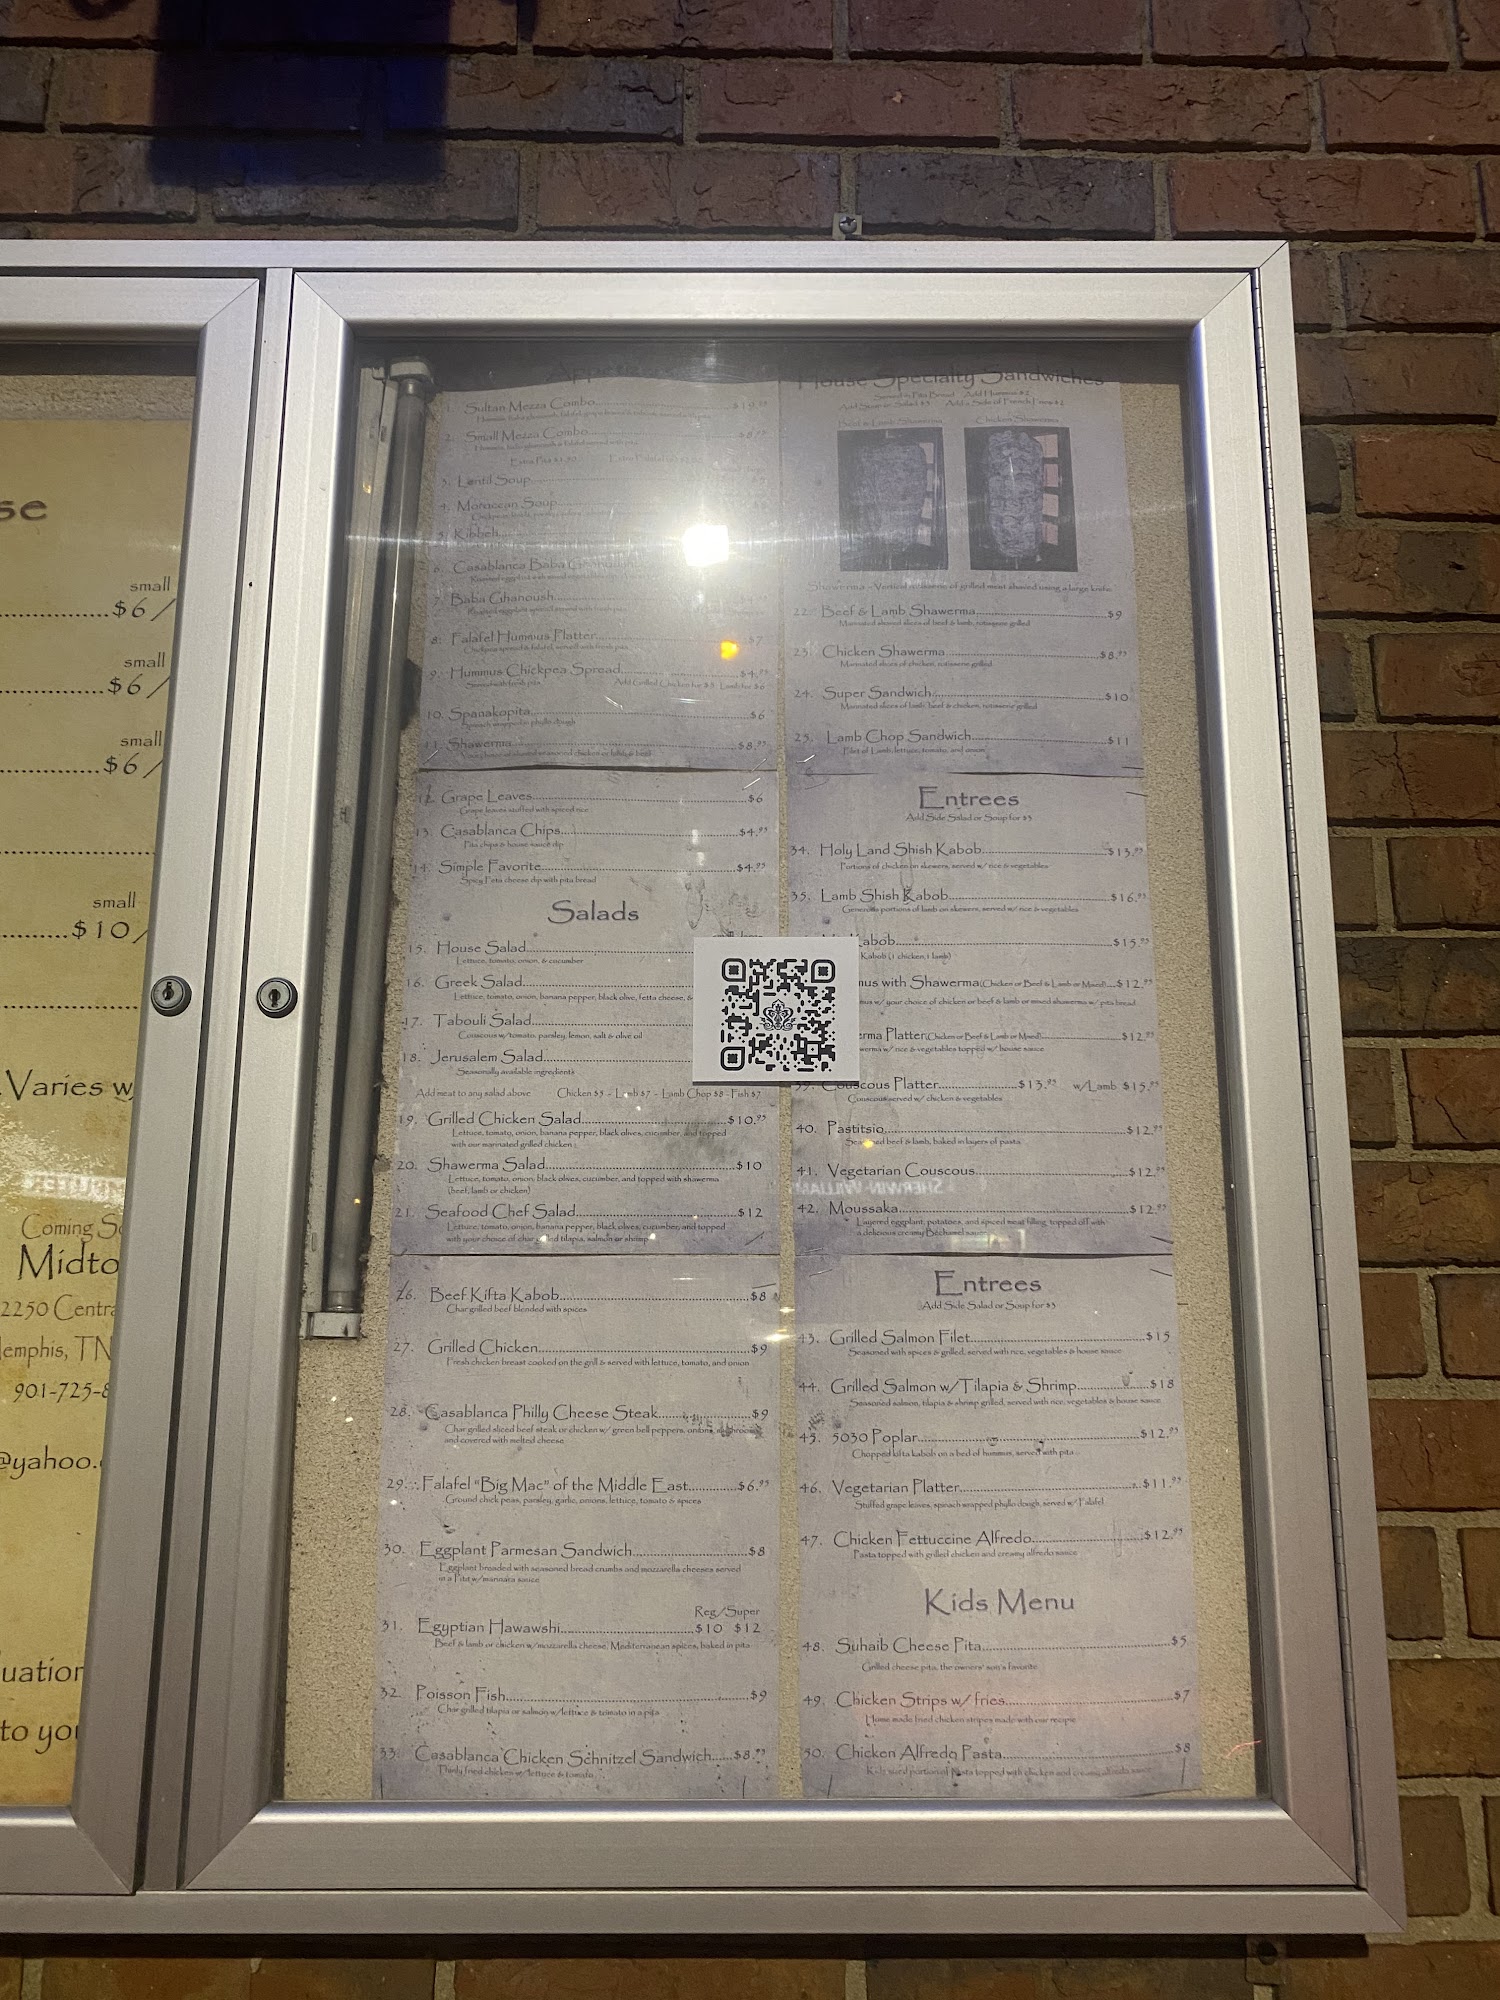 se
small
$6/
small
$6/
small
$6/
small
$10/
Varies w
Coming So
Midto
2250 Centra
emphis, TN
901-725-8
@yahoo.
uation
to you
1. Sultan Mezza Combo
2. Small Mezza Combo
3. Lentil Soup
4. Moroccan Soup
5. Kibbeh
6. Casablanca Baba Ghanoush
7. Baba Ghanoush
8. Falafel Hummus Platter $7
Chickpea spread & falafel, served with fresh pita
9. Hummus Chickpea Spread $4.95
Served with fresh pita Add Grilled Chicken for $5 Lamb for $6
10. Spanakopita $6
Spinach wrapped in phyllo dough
11. Shawerma $8.95
12. Grape Leaves $6
Grape leaves stuffed with spiced rice
13. Casablanca Chips $4.95
Pita chips & house sauce dip
14. Simple Favorite $4.95
Spicy Feta cheese dip with pita bread
Salads
15. House Salad
Lettuce, tomato, onion, & cucumber
16. Greek Salad
Lettuce, tomato, onion, banana pepper, black olive, fetta cheese, &
17. Tabouli Salad
Couscous w/tomato, parsley, lemon, salt & olive oil
18. Jerusalem Salad
Seasonally available ingredients
Add meat to any salad above Chicken $5 - Lamb $7 - Lamb Chop $8 - Fish $7
19. Grilled Chicken Salad $10.95
Lettuce, tomato, onion, banana pepper, black olives, cucumber, and topped
with our marinated grilled chicken
20. Shawerma Salad $10
Lettuce, tomato, onion, black olives, cucumber, and topped with shawerma
(beef, lamb or chicken)
21. Seafood Chef Salad $12
Lettuce, tomato, onion, banana pepper, black olives, cucumber, and topped
with your choice of char grilled tilapia, salmon or shrimp
26. Beef Kifta Kabob $8
Char grilled beef blended with spices
27. Grilled Chicken $9
Fresh chicken breast cooked on the grill & served with lettuce, tomato, and onion
28. Casablanca Philly Cheese Steak $9
Char grilled sliced beef steak or chicken w/ green bell peppers, onions, mushrooms
and covered with melted cheese
29. Falafel "Big Mac" of the Middle East $6.95
Ground chick peas, parsley, garlic, onions, lettuce, tomato & spices
30. Eggplant Parmesan Sandwich $8
Eggplant breaded with seasoned bread crumbs and mozzarella cheeses served
in a Pita w/marinara sauce
Reg/Super
31. Egyptian Hawawshi $10 $12
Beef & lamb or chicken w/mozzarella cheese, Mediterranean spices, baked in pita
32. Poisson Fish $9
Char grilled tilapia or salmon w/lettuce & tomato in a pita
33. Casablanca Chicken Schnitzel Sandwich $8.95
Thinly fried chicken w/lettuce & tomato
House Specialty Sandwiches
Served in Pita Bread Add Hummus $2
Add Soup or Salad $3 Add a Side of French Fries $2
Beef & Lamb Shawerma Chicken Shawerma
Shawerma - Vertical rotisserie of grilled meat shaved using a large knife
22. Beef & Lamb Shawerma $9
Marinated shaved slices of beef & lamb, rotisserie grilled
23. Chicken Shawerma $8.95
Marinated slices of chicken, rotisserie grilled
24. Super Sandwich $10
Marinated slices of lamb, beef & chicken, rotisserie grilled
25. Lamb Chop Sandwich $11
Filet of Lamb, lettuce, tomato, and onion
Entrees
Add Side Salad or Soup for $3
34. Holy Land Shish Kabob $13.95
Portions of chicken on skewers, served w/ rice & vegetables
35. Lamb Shish Kabob $16.95
Generous portions of lamb on skewers, served w/ rice & vegetables
Kabob $15.95
Kabob (1 chicken, 1 lamb)
mus with Shawerma (Chicken or Beef & Lamb or Mixed) $12.95
mus w/ your choice of chicken or beef & lamb or mixed shawerma w/ pita bread
erma Platter (Chicken or Beef & Lamb or Mixed) $12.95
werma w/ rice & vegetables topped w/ house sauce
39. Couscous Platter $13.95 w/Lamb $15.95
Couscous served w/ chicken & vegetables
40. Pastitsio $12.95
Seasoned beef & lamb, baked in layers of pasta
41. Vegetarian Couscous $12.95
SHERWIN-WILLIAM
42. Moussaka $12.95
Layered eggplant, potatoes, and spiced meat filling topped off with
a delicious creamy Béchamel sauce
Entrees
Add Side Salad or Soup for $3
43. Grilled Salmon Filet $15
Seasoned with spices & grilled, served with rice, vegetables & house sauce
44. Grilled Salmon w/Tilapia & Shrimp $18
Seasoned salmon, tilapia & shrimp grilled, served with rice, vegetables & house sauce
45. 5030 Poplar $12.95
Chopped kifta kabob on a bed of hummus, served with pita
46. Vegetarian Platter $11.95
Stuffed grape leaves, spinach wrapped phyllo dough, served w/ Falafel
47. Chicken Fettuccine Alfredo $12.95
Pasta topped with grilled chicken and creamy alfredo sauce
Kids Menu
48. Suhaib Cheese Pita $5
Grilled cheese pita, the owners' son's favorite
49. Chicken Strips w/ fries $7
Home made fried chicken stripes made with our recipe
50. Chicken Alfredo Pasta $8
Kids sized portion of Pasta topped with chicken and creamy alfredo sauce